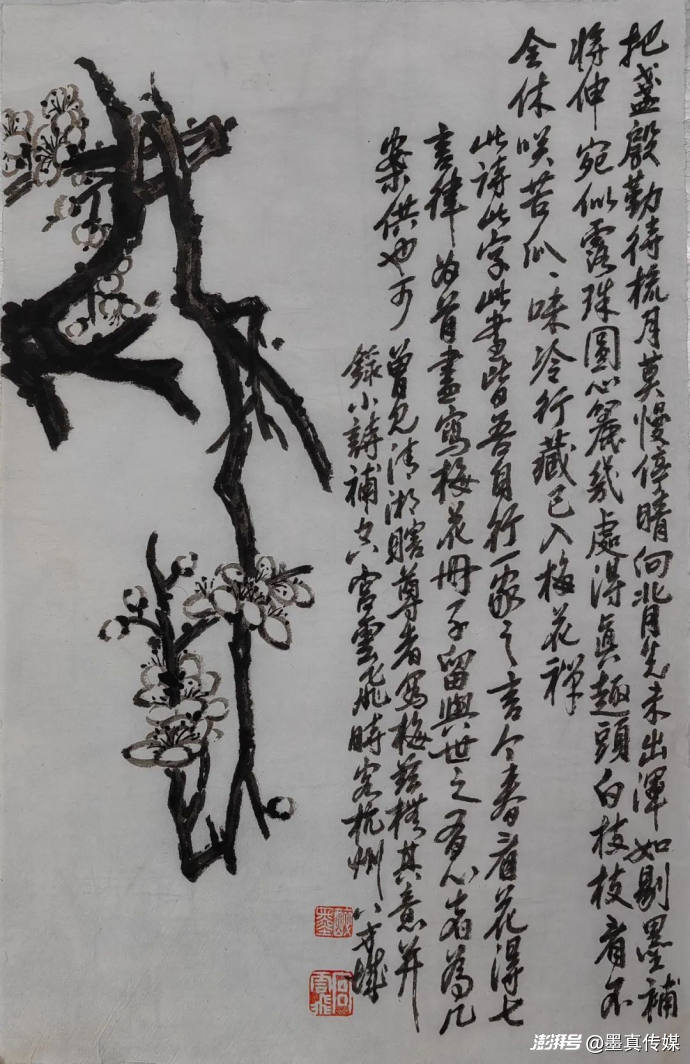 把盏殷勤待梳月莫慢停睛向背先未出渾如剔墨補
將伸宛似露珠圓心麗幾處得真趣頭白枝枝看不
全休咲苦瓜、味冷行藏已入梅花禅
此詩此字此畫皆吾自行一家之言今春看花得七
言律為首畫寫梅花冊子留與世之有心者為几
案供也可
曾見清湘瞎尊者寫梅茲橅其意并
錄小詩補空宫雲飛時客杭州八方城
澎湃号@墨真传媒